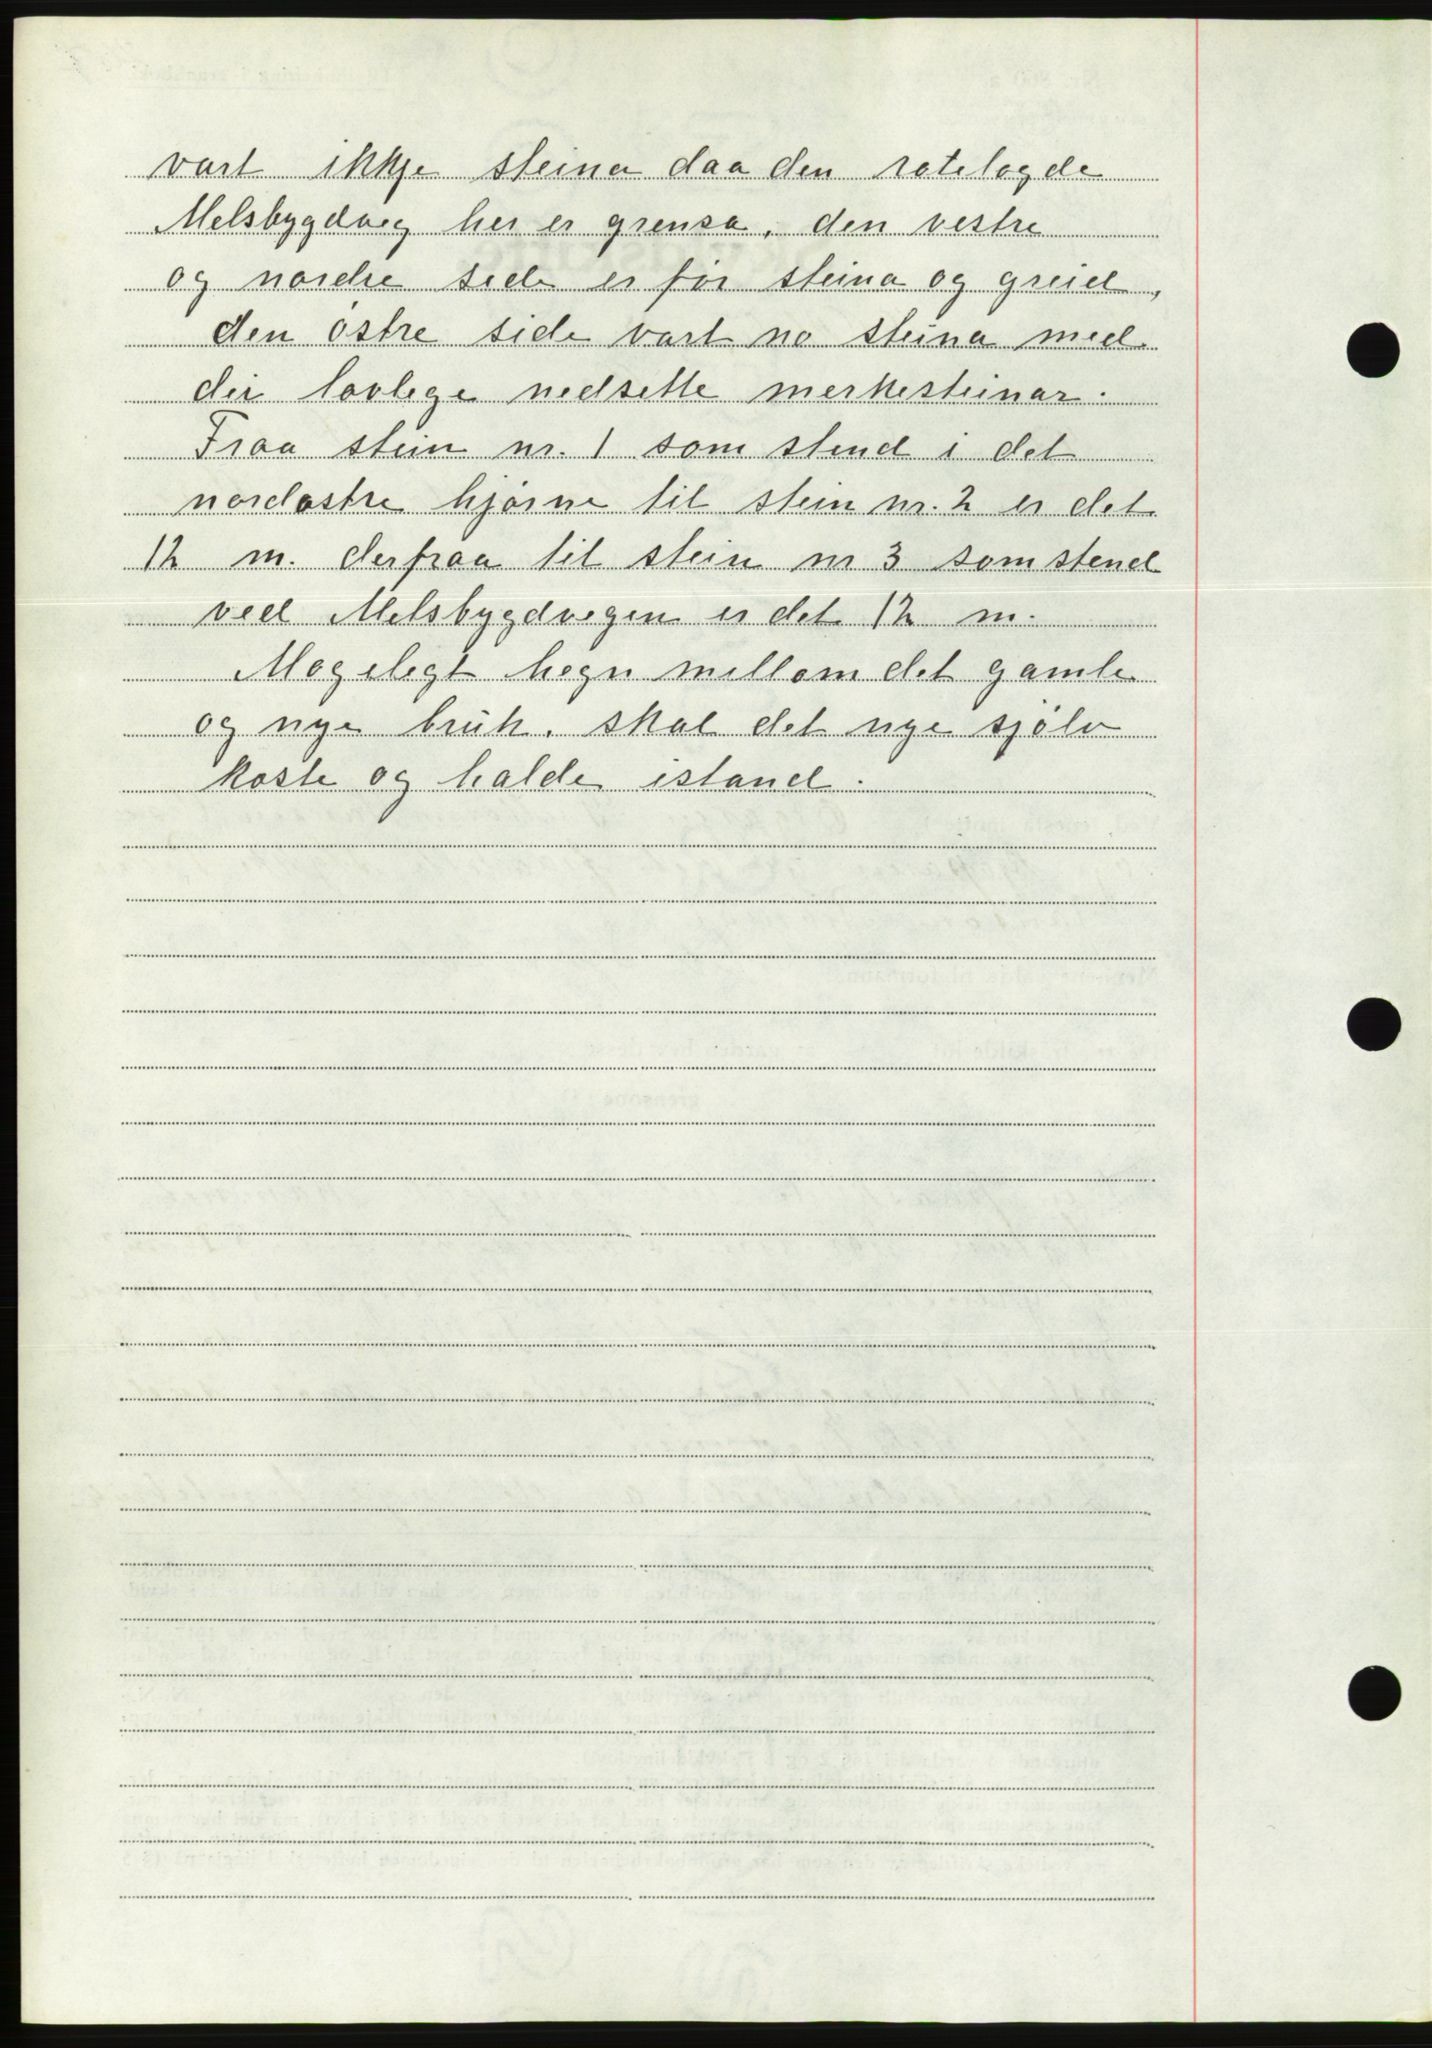 vart ikkje steina daa den rotelagde
Melsbygdveg her er grensa, den vestre
og nordre side er før steina og greid,
den østre side vart no steina med
dei lovlege nedsette merkesteinar.
Fraa stein nr. 1 som stend i det
nordøstre hjørne til stein nr. 2 er det
12 m. derfraa til stein nr 3 som stend
ved Melsbygdvegen er det 12 m.
Mogelegt hegn mellom det gamle
og nye bruk, skal det nye sjølv
koste og halde istand.